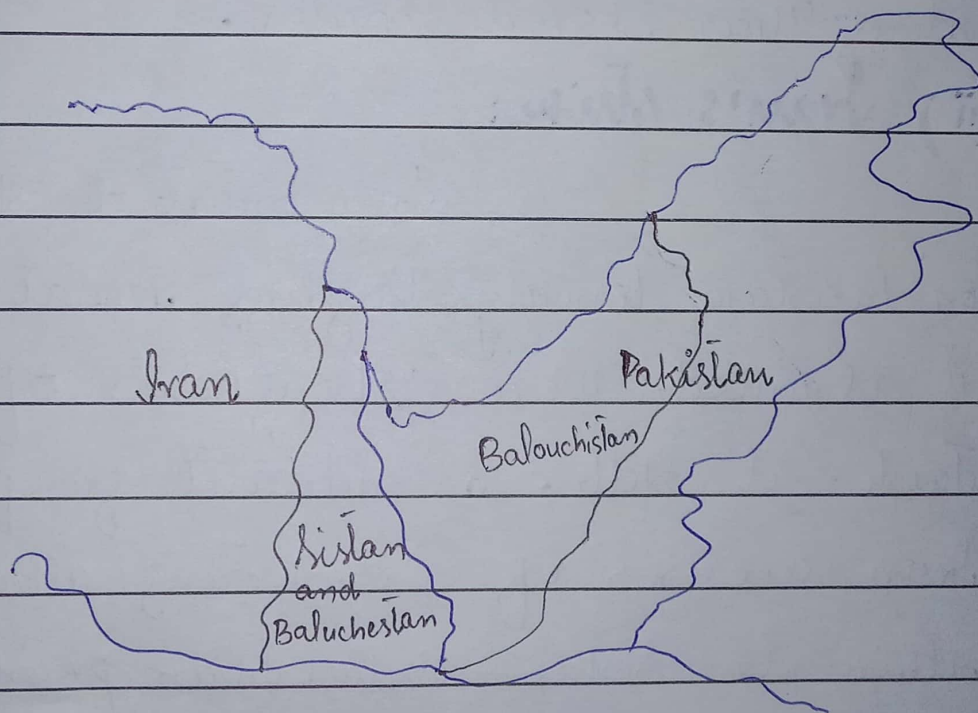 Iran
Pakistan
Balouchistan
Sistan
and
Baluchestan